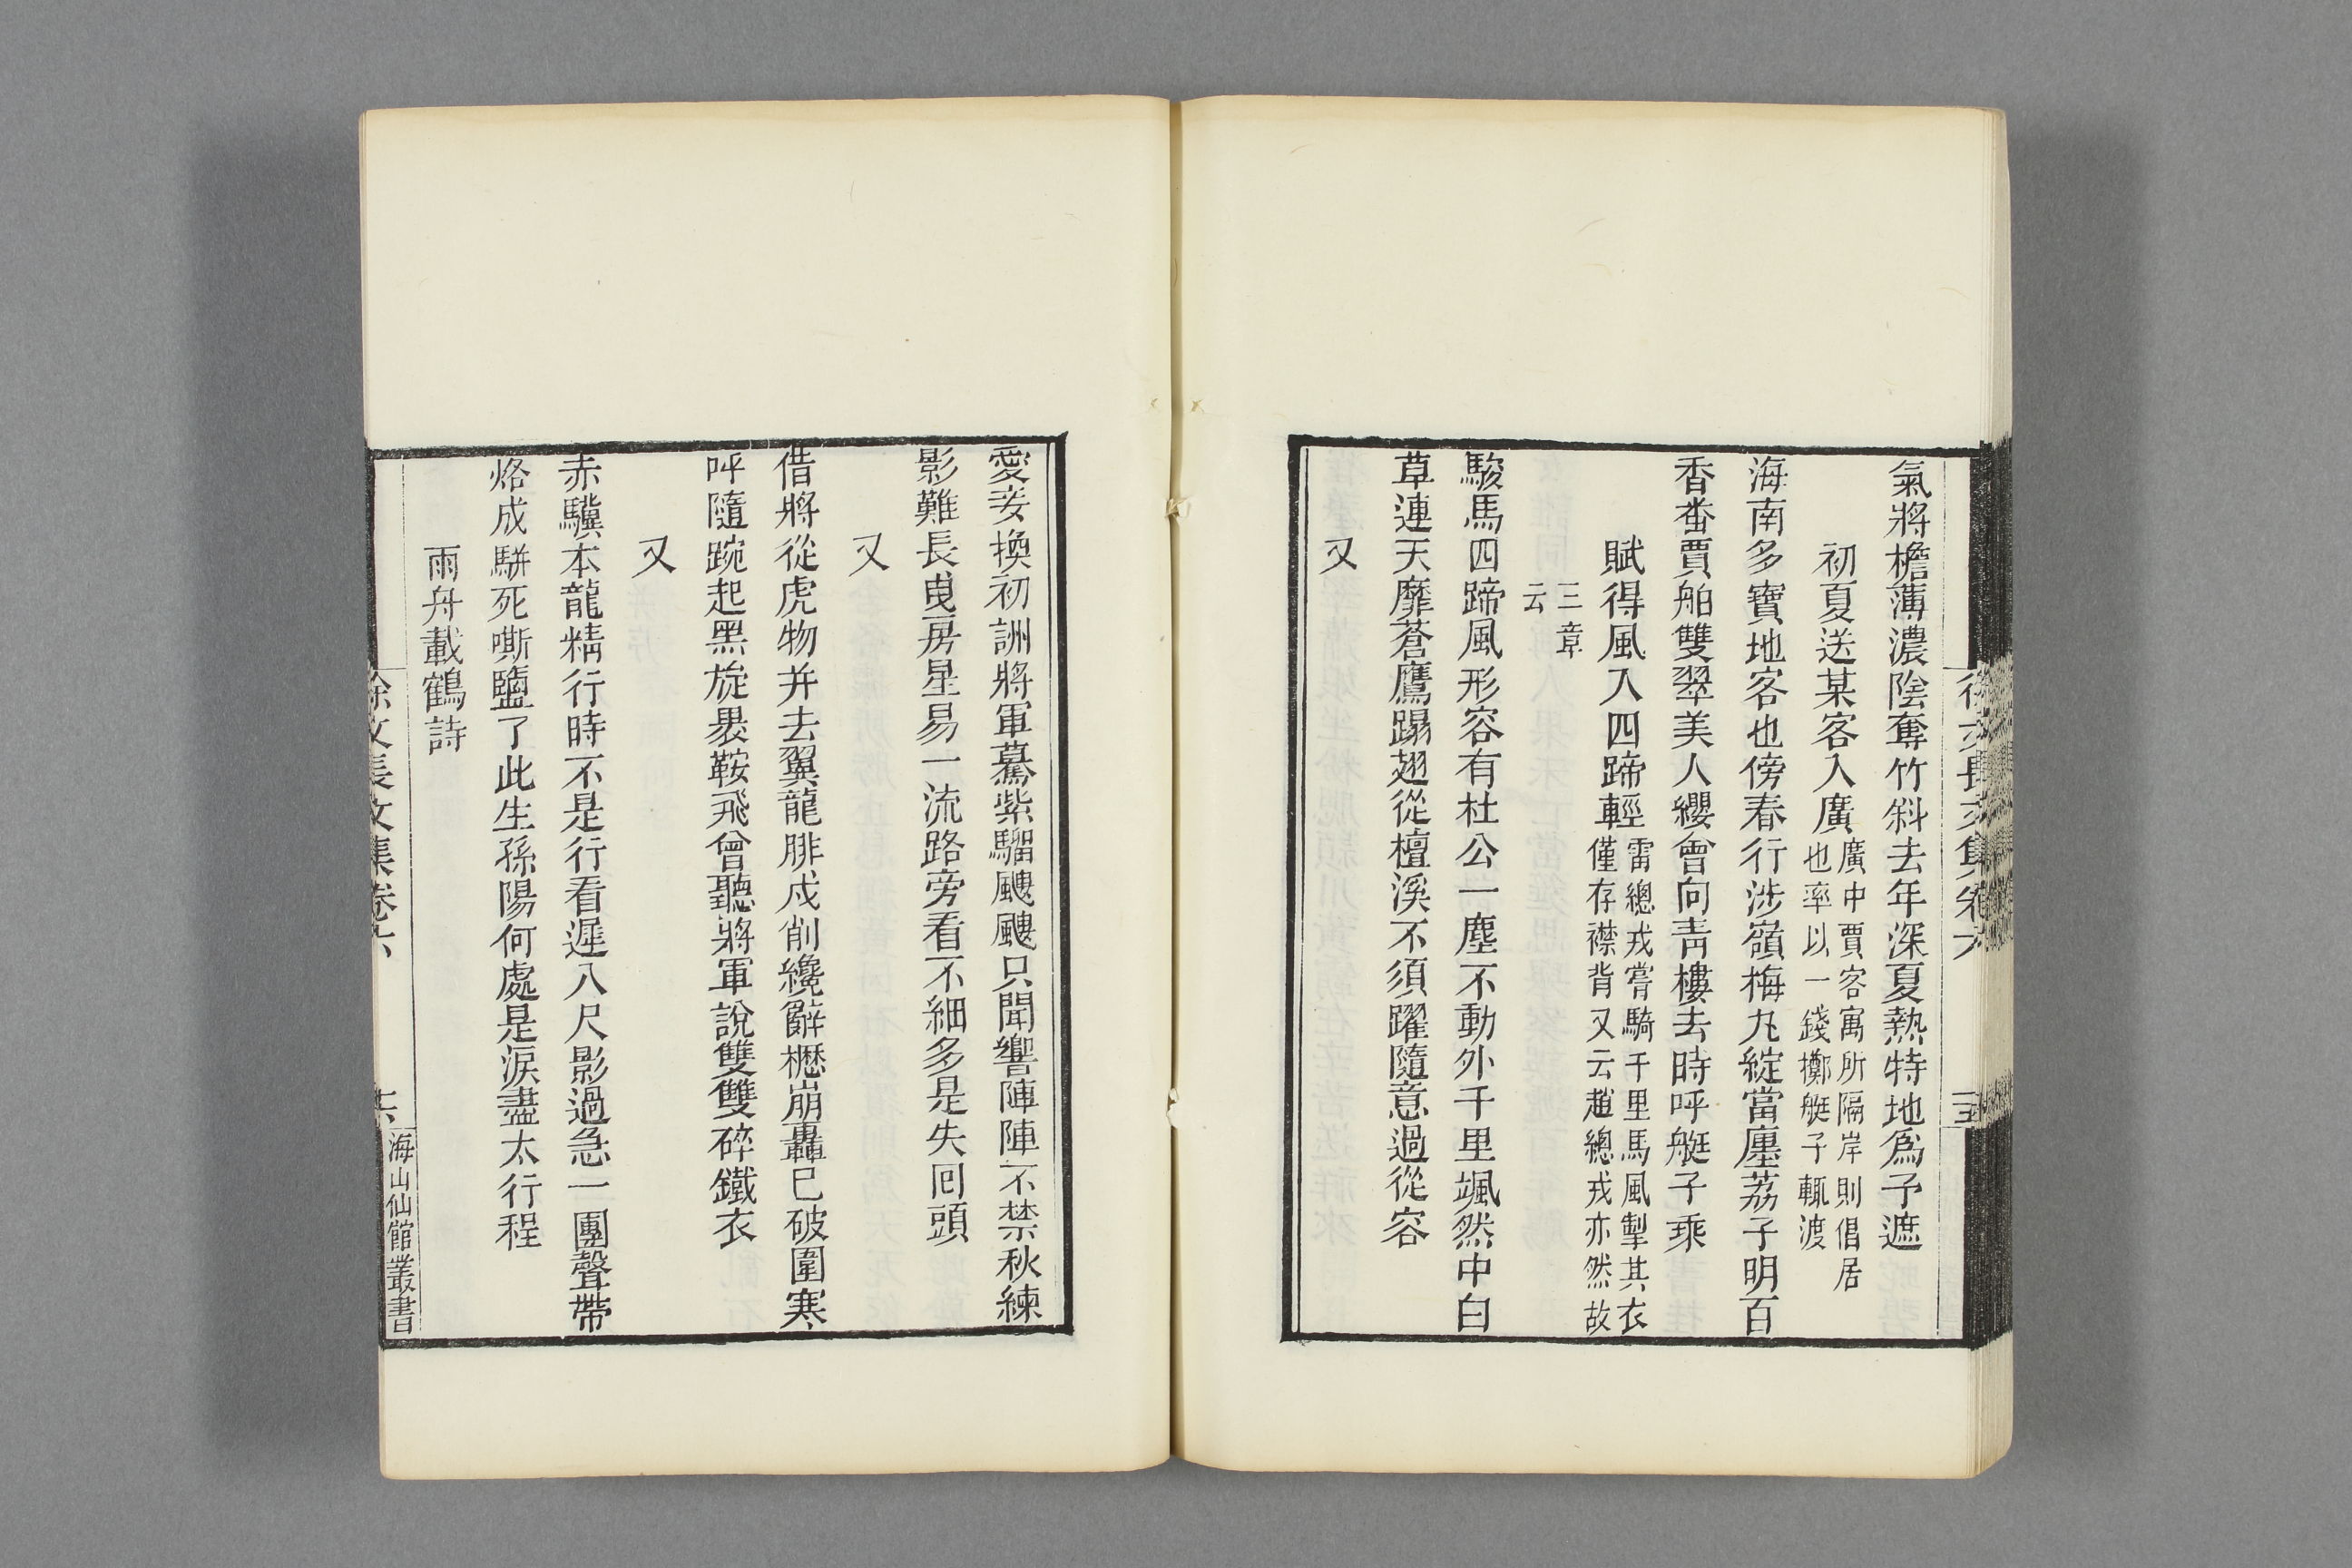 氣將檐薄濃陰奪竹斜去年深夏熱特地爲予遮
初夏送某客入廣廣中賈客寓所隔岸則倡居
也率以一錢擲艇子輒渡
海南多寶地客也傍春行涉嶺梅九綻當廛荔子明百
香畨賈舶雙翠美人纓會向青樓去時呼艇子乘
賦得風入四蹄輕雷總戎嘗騎千里馬風掣其衣
僅存襟背又云趙總戎亦然故
三章
云
駿馬四蹄風形容有杜公一塵不動外千里颯然中白
草連天靡蒼鷹蹋翅從檀溪不須躍隨意過從容
又
愛妾換初詶將軍驀紫騮颼颼只聞響陣陣不禁秋練
影難長曵房星易一流路旁看不細多是失囘頭
又
借將從虎物并去翼龍腓戍削纔辭櫪崩轟已破圍寒
呼隨踠起黑旋褁鞍飛曾聽將軍說雙雙碎鐵衣
又
赤驥本龍精行時不是行看遲八尺影過急一團聲帶
烙成騈死嘶鹽了此生孫陽何處是淚盡太行程
雨舟載鶴詩
徐文長文集卷六
海山仙館叢書